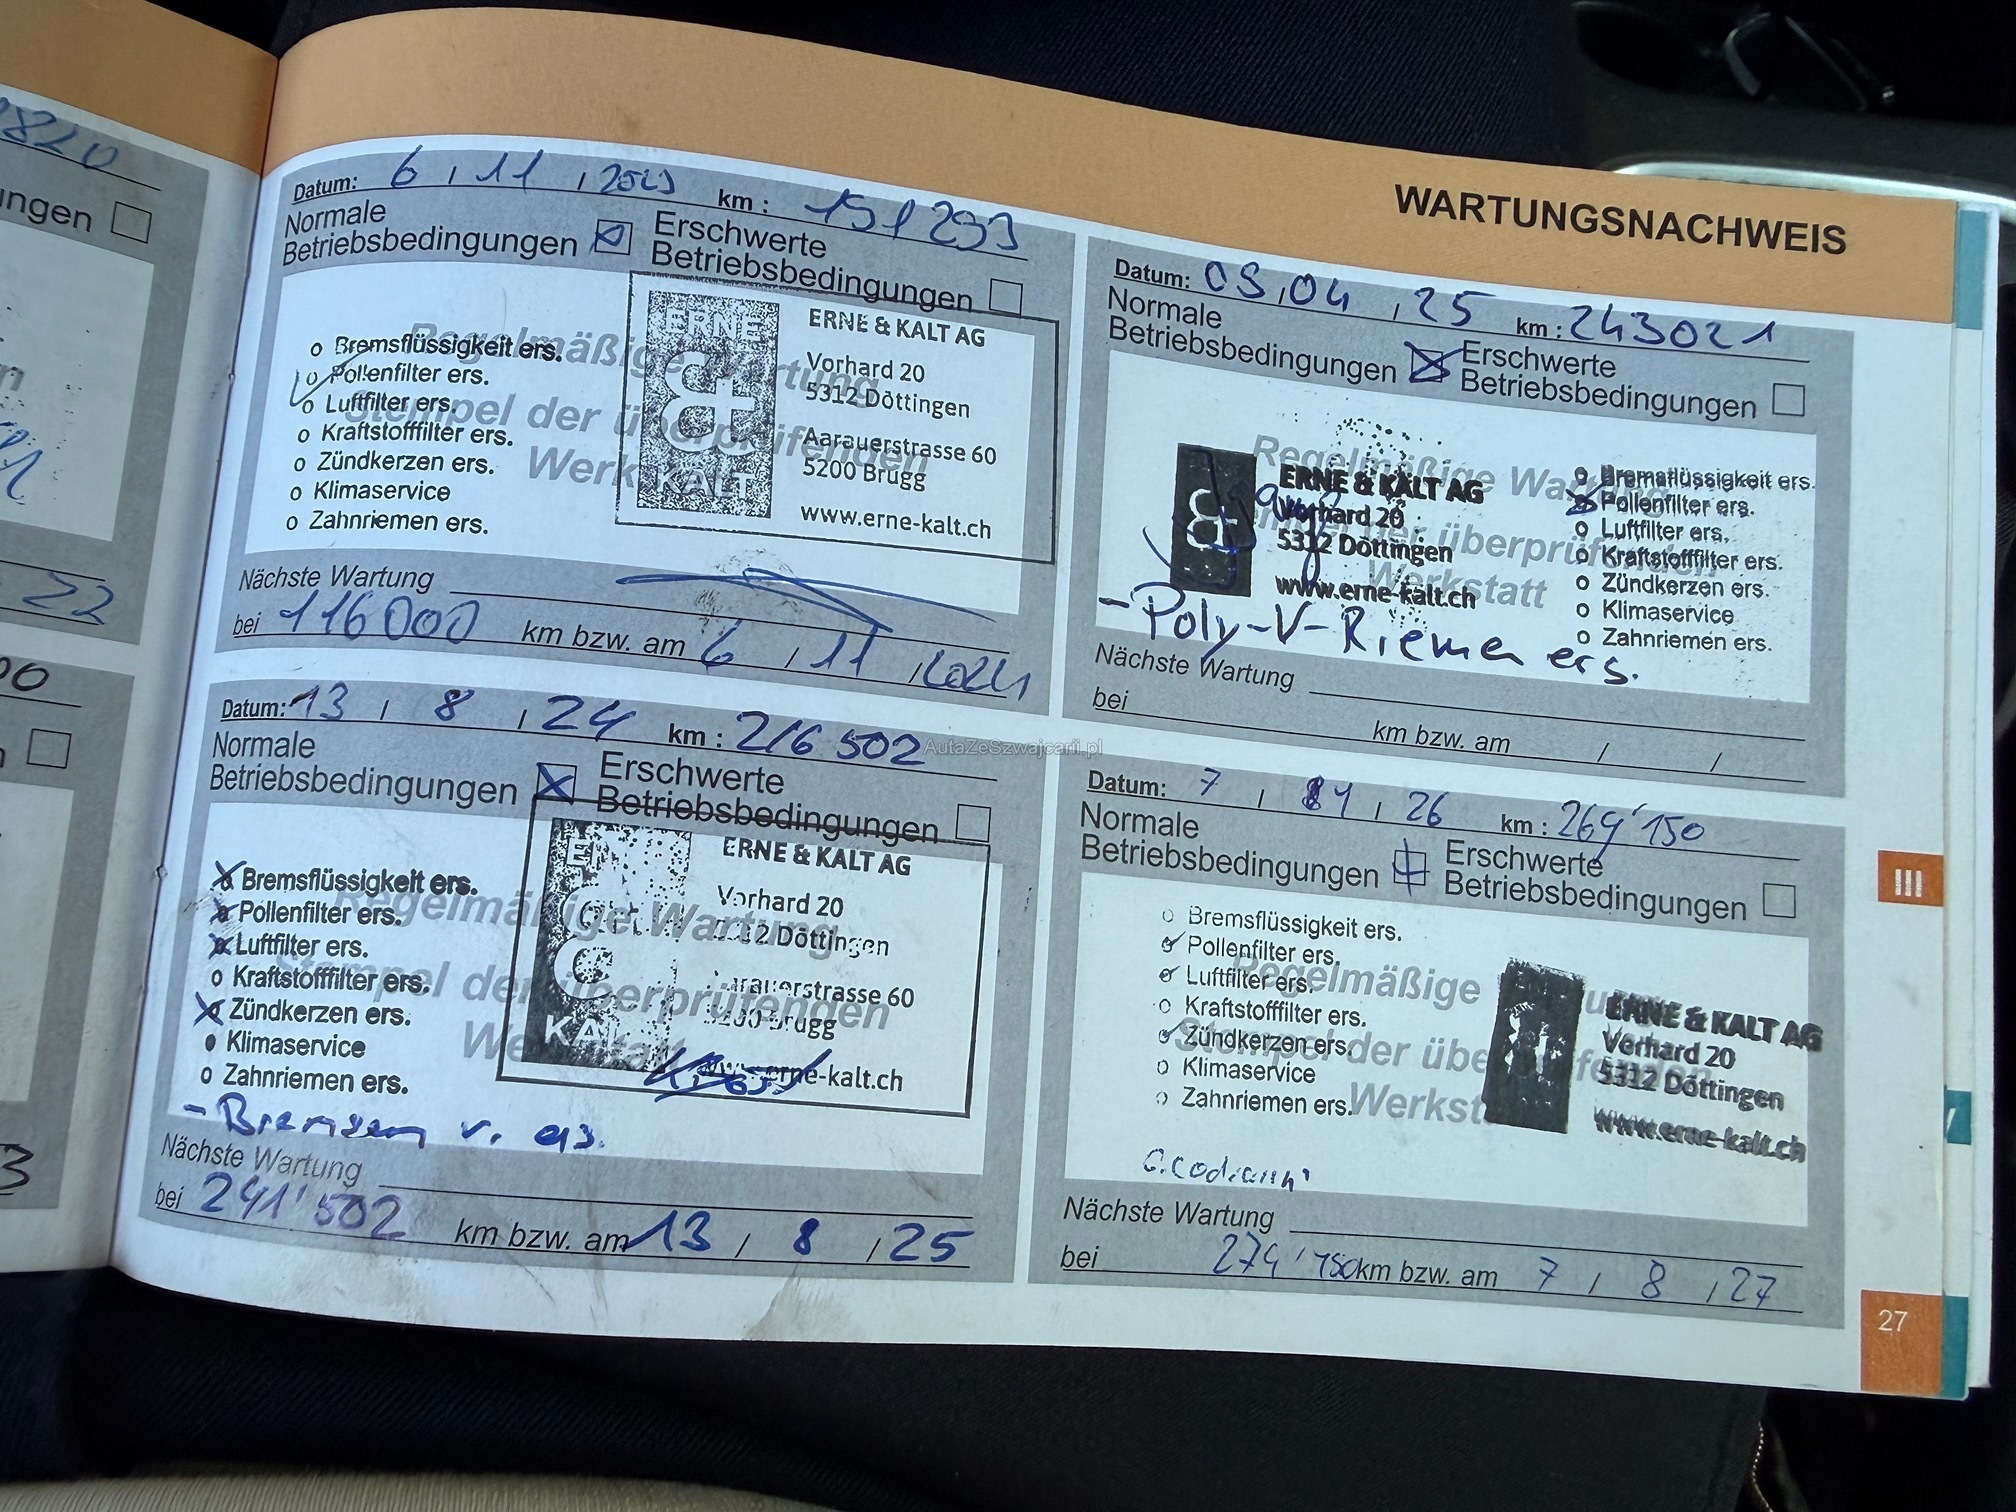 820
ngen
22
WARTUNGSNACHWEIS
Datum: 6 / 11 / 2023 km : 191 293
Normale
Betriebsbedingungen
Erschwerte
Betriebsbedingungen
Regelmäßige Wartung
Stempel der überprüfenden
Werkstatt
o Bremsflüssigkeit ers.
o Pollenfilter ers.
o Luftfilter ers.
o Kraftstofffilter ers.
o Zündkerzen ers.
o Klimaservice
o Zahnriemen ers.
ERNE
&
KALT
ERNE & KALT AG
Vorhard 20
5312 Döttingen
Aarauerstrasse 60
5200 Brugg
www.erne-kalt.ch
Nächste Wartung
bei 116000 km bzw. am 6 / 11 / 2024
Datum: 13 / 8 / 24 km : 216 502
Normale
Betriebsbedingungen
Erschwerte
Betriebsbedingungen
Regelmäßige Wartung
Stempel der überprüfenden
o Bremsflüssigkeit ers.
o Pollenfilter ers.
o Luftfilter ers.
o Kraftstofffilter ers.
o Zündkerzen ers.
o Klimaservice
o Zahnriemen ers.
ERNE & KALT AG
Vorhard 20
5312 Döttingen
Aarauerstrasse 60
5200 Brugg
www.erne-kalt.ch
- Bremsen v. ers.
Nächste Wartung
bei 241'502 km bzw. am 13 / 8 / 25
Datum: 03 / 04 / 25 km : 243021
Normale
Betriebsbedingungen
Erschwerte
Betriebsbedingungen
Regelmäßige Wartung
Stempel der überprüfenden
Werkstatt
&
ERNE & KALT AG
Vorhard 20
5312 Döttingen
www.erne-kalt.ch
o Bremsflüssigkeit ers.
o Pollenfilter ers.
o Luftfilter ers.
o Kraftstofffilter ers.
o Zündkerzen ers.
o Klimaservice
o Zahnriemen ers.
- Poly-V-Riemen ers.
Nächste Wartung
bei km bzw. am / /
AutaZeSzwajcarii.pl
Datum: 7 / / 26 km : 264'150
Normale
Betriebsbedingungen
Erschwerte
Betriebsbedingungen
Regelmäßige
Stempel der überprüfenden
o Bremsflüssigkeit ers.
o Pollenfilter ers.
o Luftfilter ers.
o Kraftstofffilter ers.
o Zündkerzen ers.
o Klimaservice
o Zahnriemen ers.
ERNE & KALT AG
Vorhard 20
5312 Döttingen
www.erne-kalt.ch
Nächste Wartung
bei 274'150 km bzw. am 7 / 8 / 27
III
27